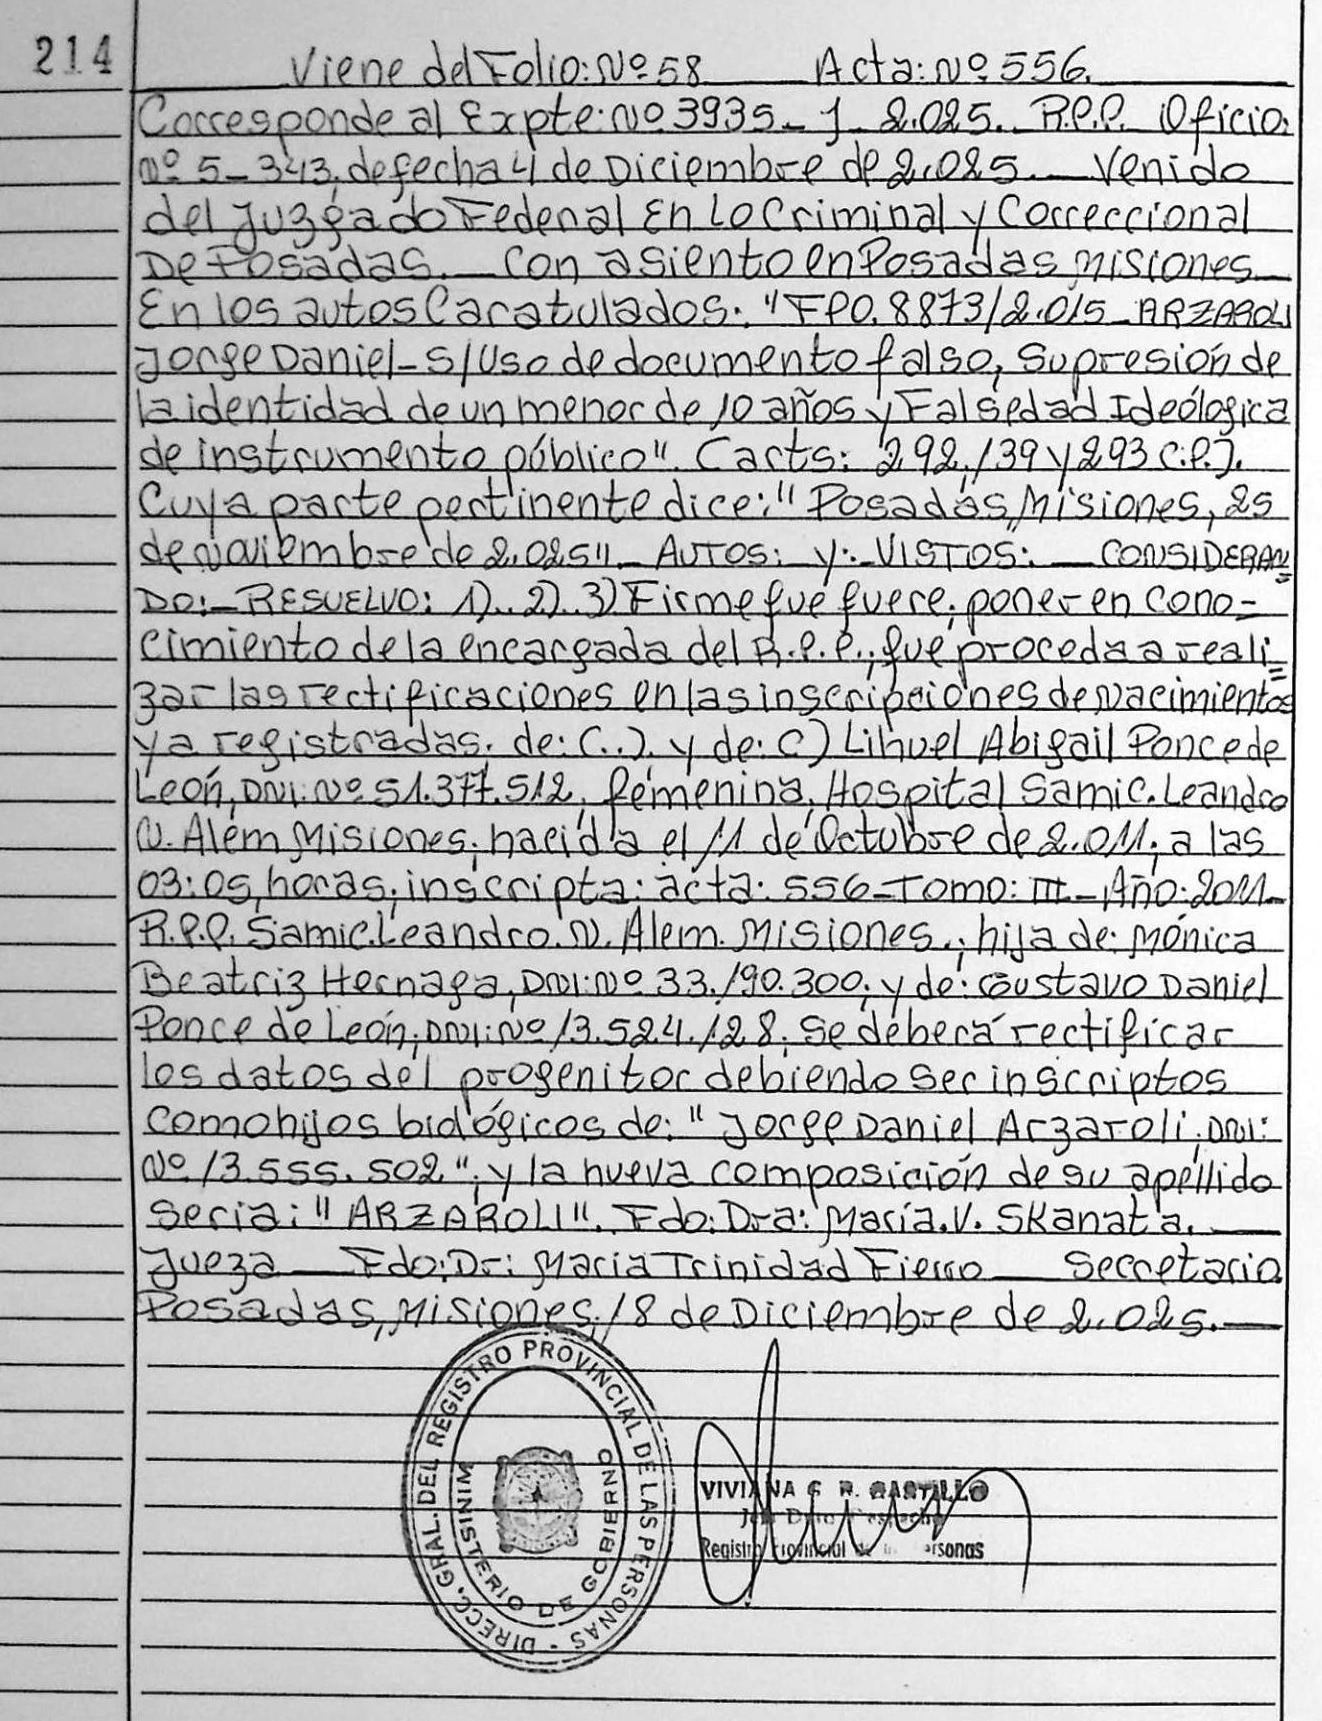 214
Viene del Folio: Nº 58 Acta: Nº 556.
Corresponde al Expte: Nº 3935_ J_ 2.025. R.P.P. Oficio:
Nº 5_343, de fecha 4 de Diciembre de 2.025. Venido
del Juzgado Federal En Lo Criminal y Correccional
De Posadas. Con asiento en Posadas Misiones
En los autos Caratulados: "FPO. 8873/2.015 ARZAROLI
Jorge Daniel_S/Uso de documento falso, Supresión de
la identidad de un menor de 10 años y Falsedad Ideólogica
de instrumento público". Carts: 292,139 y 293 C.P.).
Cuya parte pertinente dice: "Posadas, Misiones, 25
de Noviembre de 2.025". AUTOS: y:_ VISTOS: CONSIDERAN=
DO:_ RESUELVO: 1).. 2).. 3) Firme que fuere, poner en cono-
cimiento de la encargada del R.P.P., que proceda a reali=
zar las rectificaciones en las inscripciones de Nacimientos
ya registradas. de: (..). y de: C) Lihuel Abigail Ponce de
León, DNI: Nº 51.377.512, femenina, Hospital Samic. Leandro
N. Alem Misiones, nacida el 11 de Octubre de 2.011; a las
03:05, horas; inscripta: acta: 556_Tomo: III_ Año: 2011_
R.P.P. Samic. Leandro. N. Alem. Misiones., hija de: Mónica
Beatriz Hernaga, DNI: Nº 33.190.300; y de: Gustavo Daniel
Ponce de León, DNI: Nº 13.524.128; se deberá rectificar
los datos del progenitor debiendo ser inscriptos
como hijos biológicos de: "Jorge Daniel Arzaroli, DNI:
Nº 13.555.502", y la nueva composición de su apellido
seria: "ARZAROLI". Fdo: Dra: María. V. Skanata.
Jueza Fdo: Dr: Maria Trinidad Fierro Secretario
Posadas, Misiones, 18 de Diciembre de 2.025.
DIRECC. GRAL. DEL REGISTRO PROVINCIAL DE LAS PERSONAS
MINISTERIO DE GOBIERNO
VIVIANA R. CASTILLO
Registro Provincial de las Personas